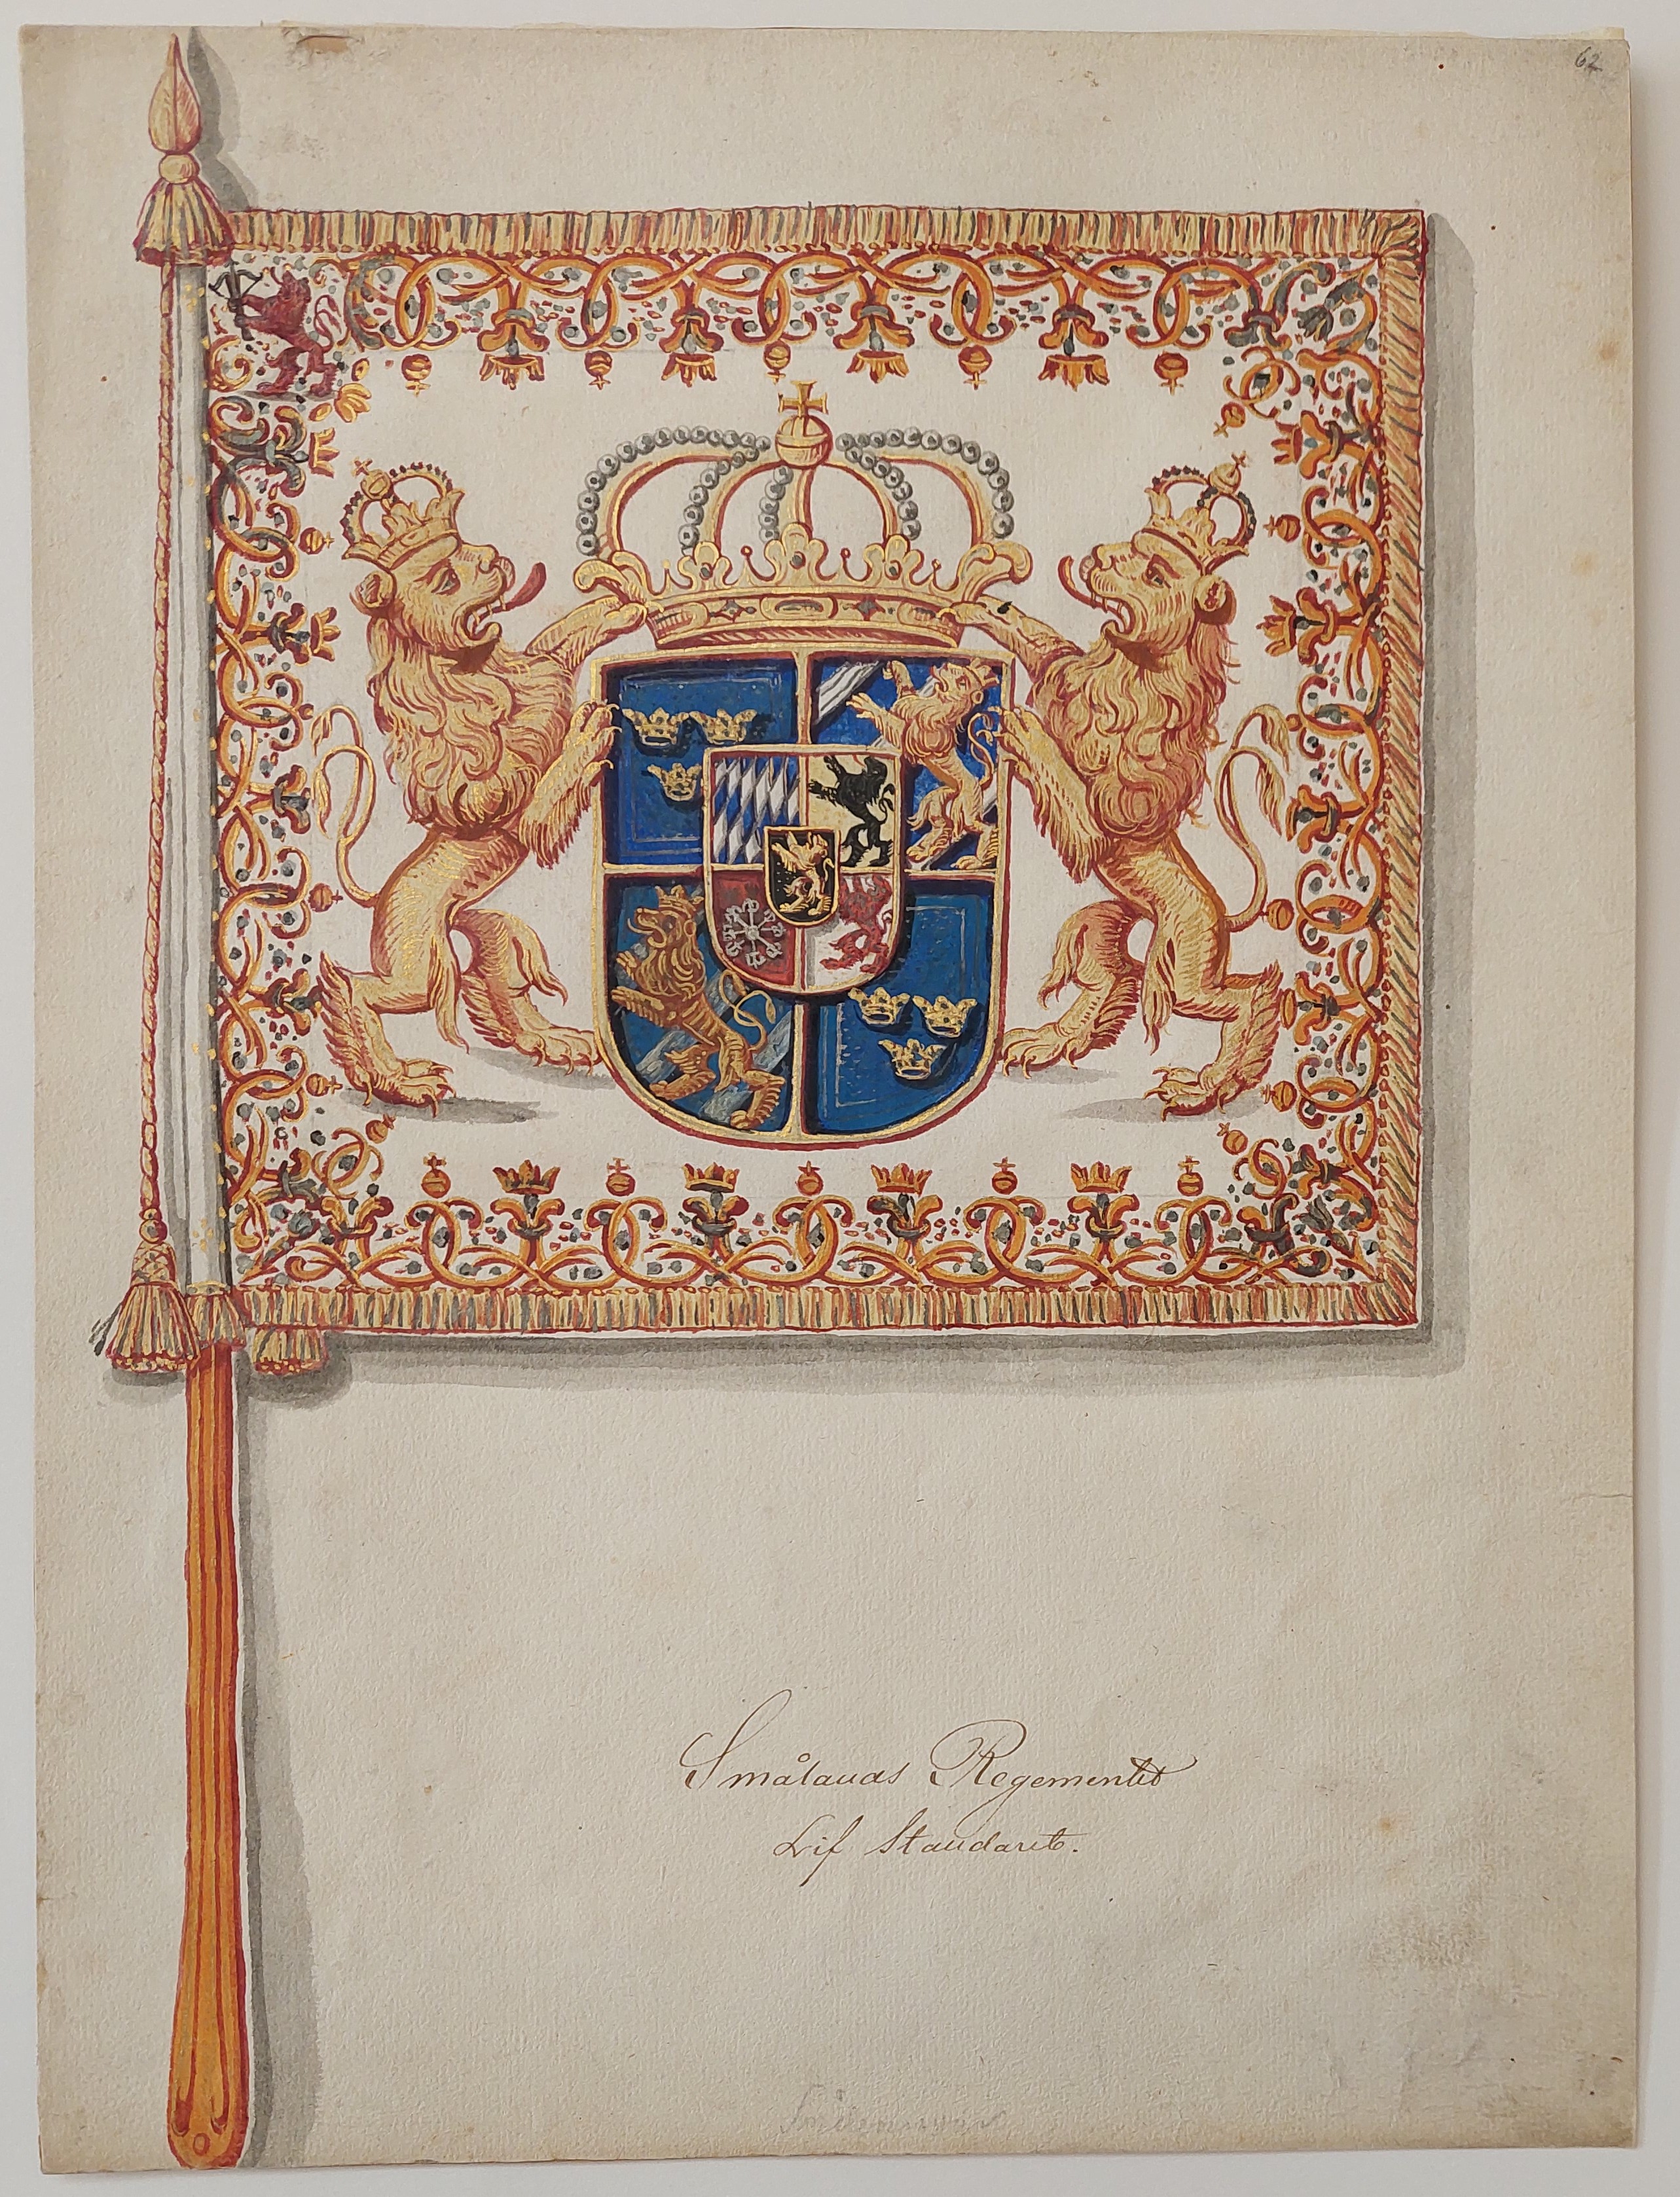 62
Smålands Regementet
Lif Standaret.